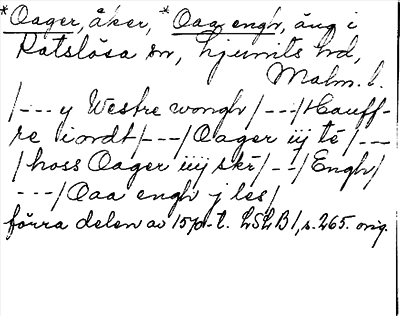 *Oager, åker, *Oaa engh, äng i
Ratslösa sn, Ljunits hd,
Malm. l.
/--- y Westre wongh /---/ Hauff-
re iordt /---/ Oager iij tē /---
/ hoss Oager iiij skē /--/ Engh /
---/ Oaa engh j les /
förra delen av 1570-t. LSLB 1, s. 265. orig.